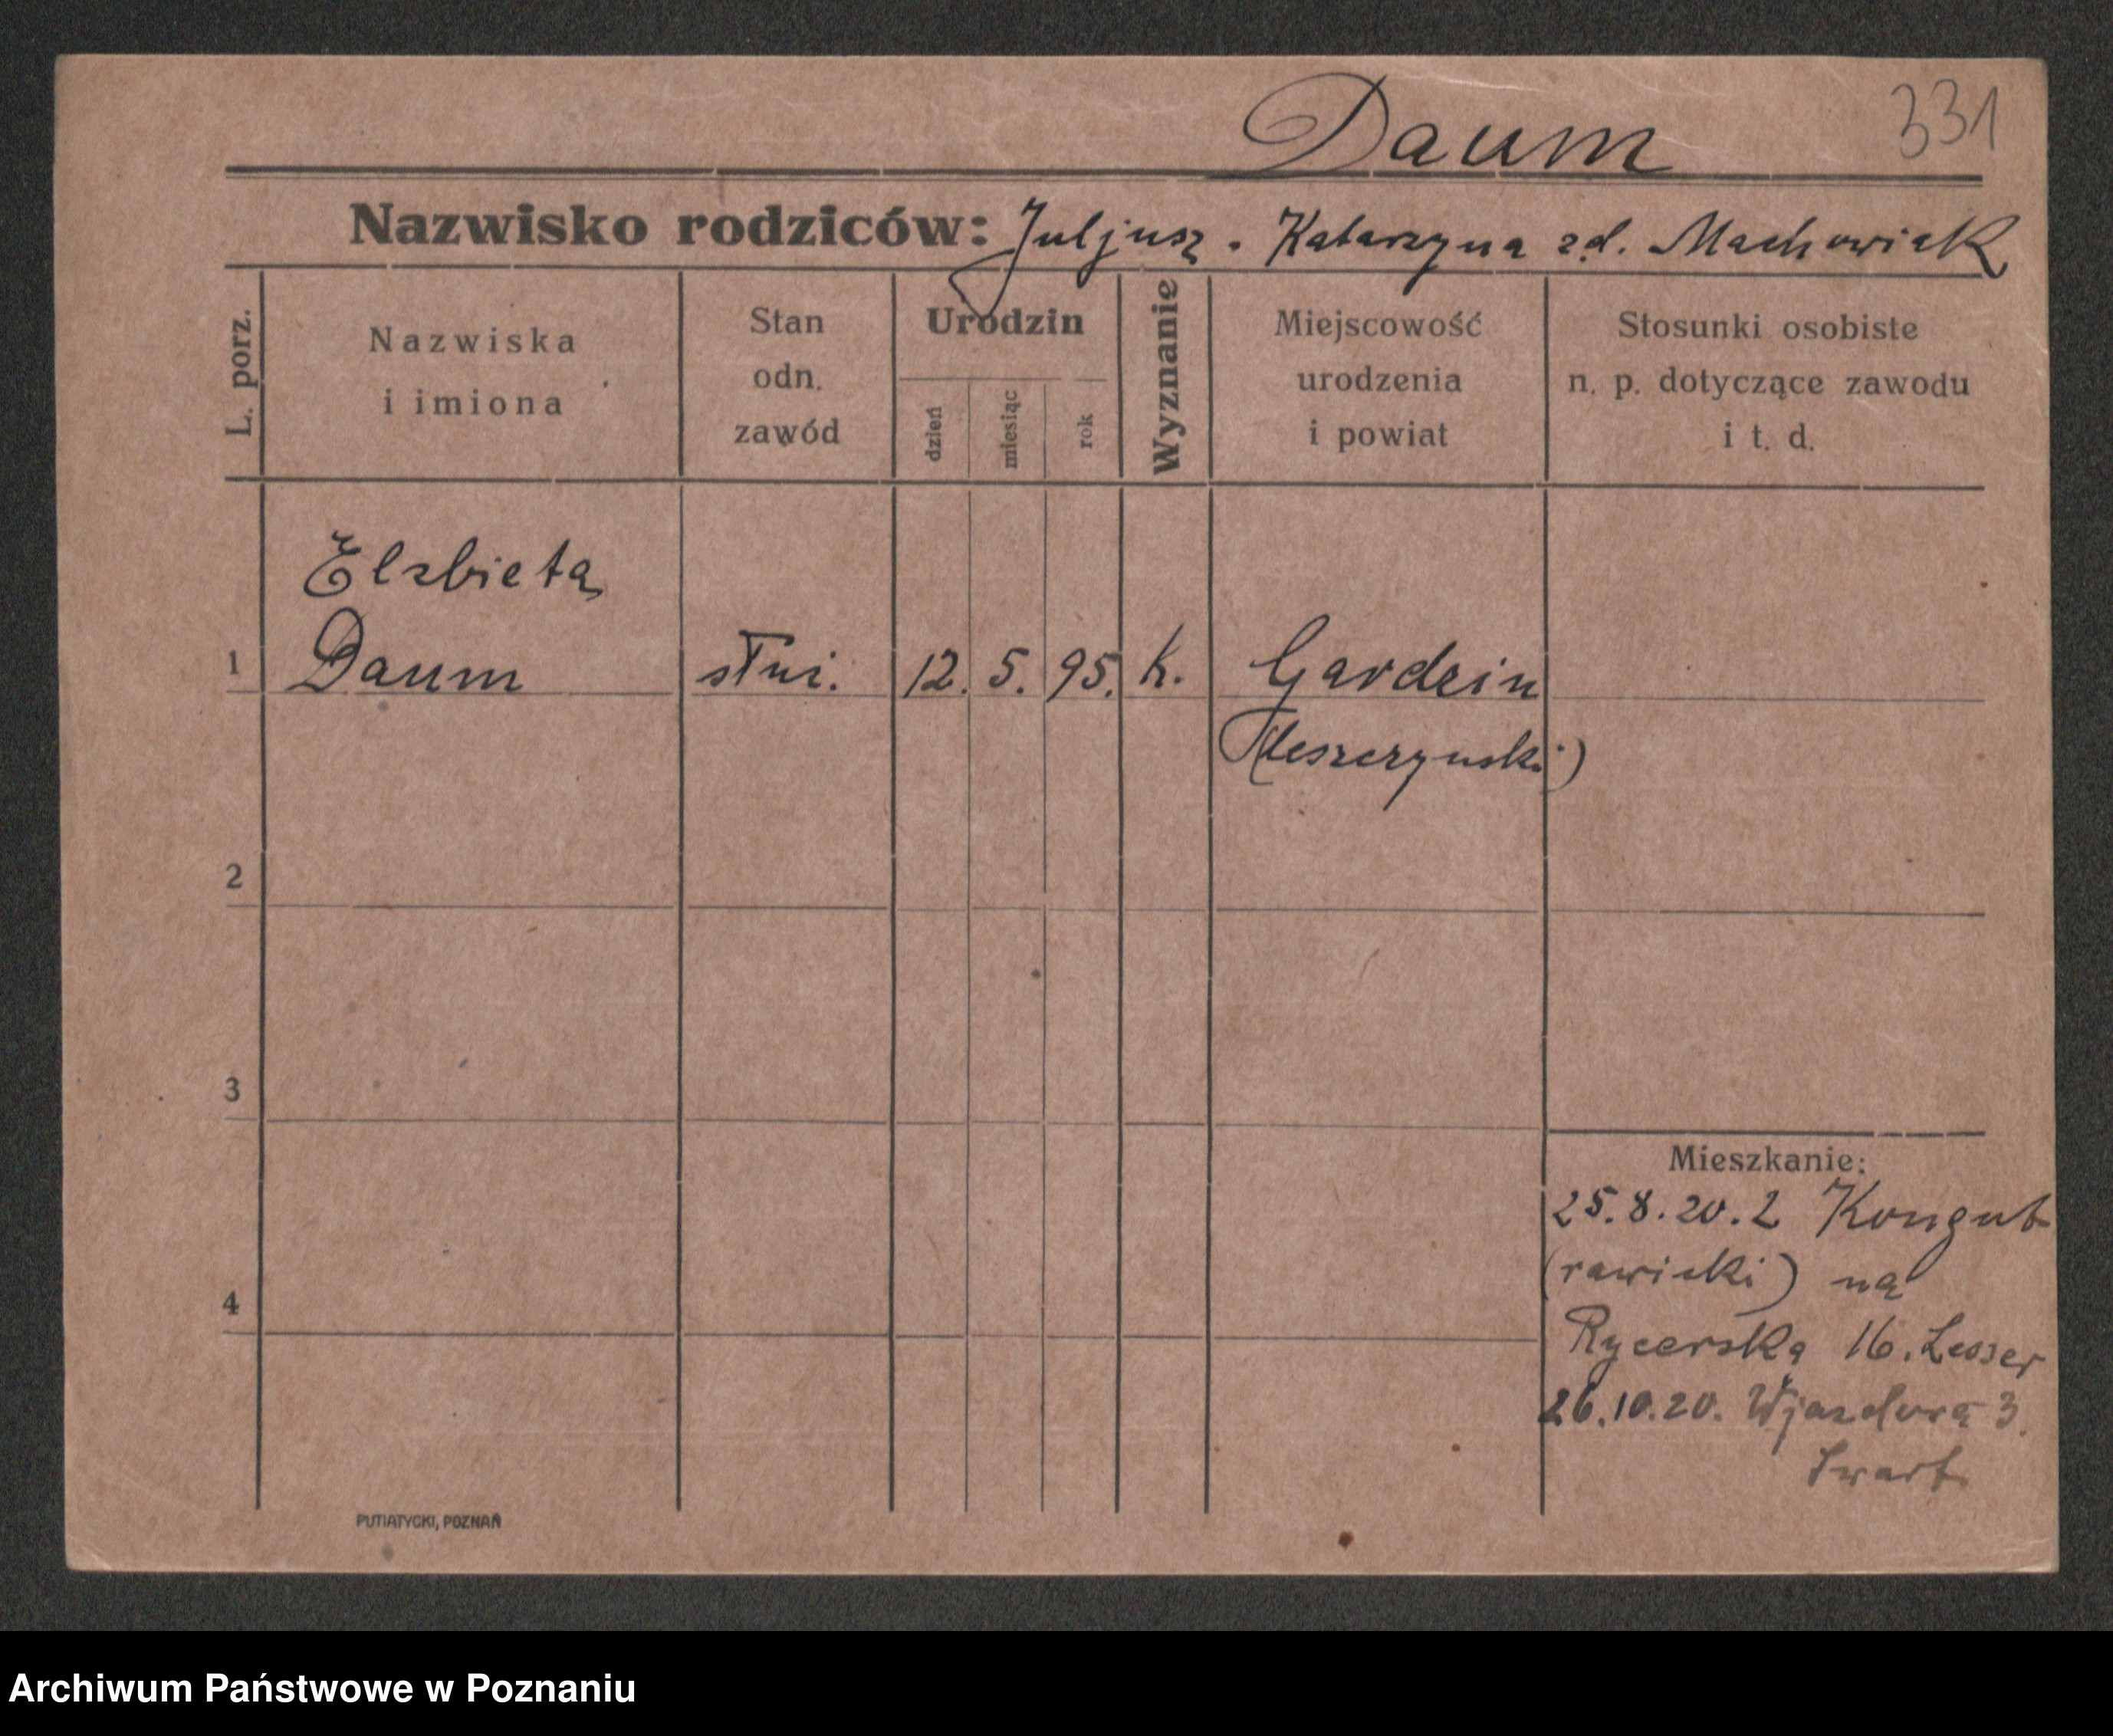 Daum
331
Nazwisko rodziców: Juljusz. Katarzyna zd. Machowiak
L. porz.
Nazwiska
i imiona
Stan
odn.
zawód
Urodzin
dzień
miesiąc
rok
Wyznanie
Miejscowość
urodzenia
i powiat
Stosunki osobiste
n. p. dotyczące zawodu
i t. d.
Elzbieta
1 Daum służ. 12. 5. 95. k. Gardzin
(leszczynski)
2
3
4
Mieszkanie:
25.8.20. z
(rawicki) na
Rycerska 16. Lesser
26.10.20. Wjazdowa 3.
PUTIATYCKI, POZNAŃ
Archiwum Państwowe w Poznaniu